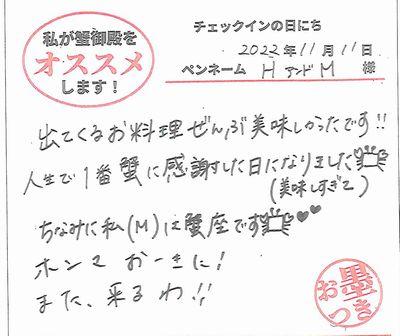 私が蟹御殿を
オススメ
します!
チェックインの日にち
2022年11月11日
ペンネーム H アンド M 様
出てくるお料理ぜんぶ美味しかったです!!
人生で1番蟹に感謝した日になりました
(美味しすぎて)
ちなみに私(M)は蟹座です♥♥
ホンマおーきに!
また、来るわ!!
お墨つき